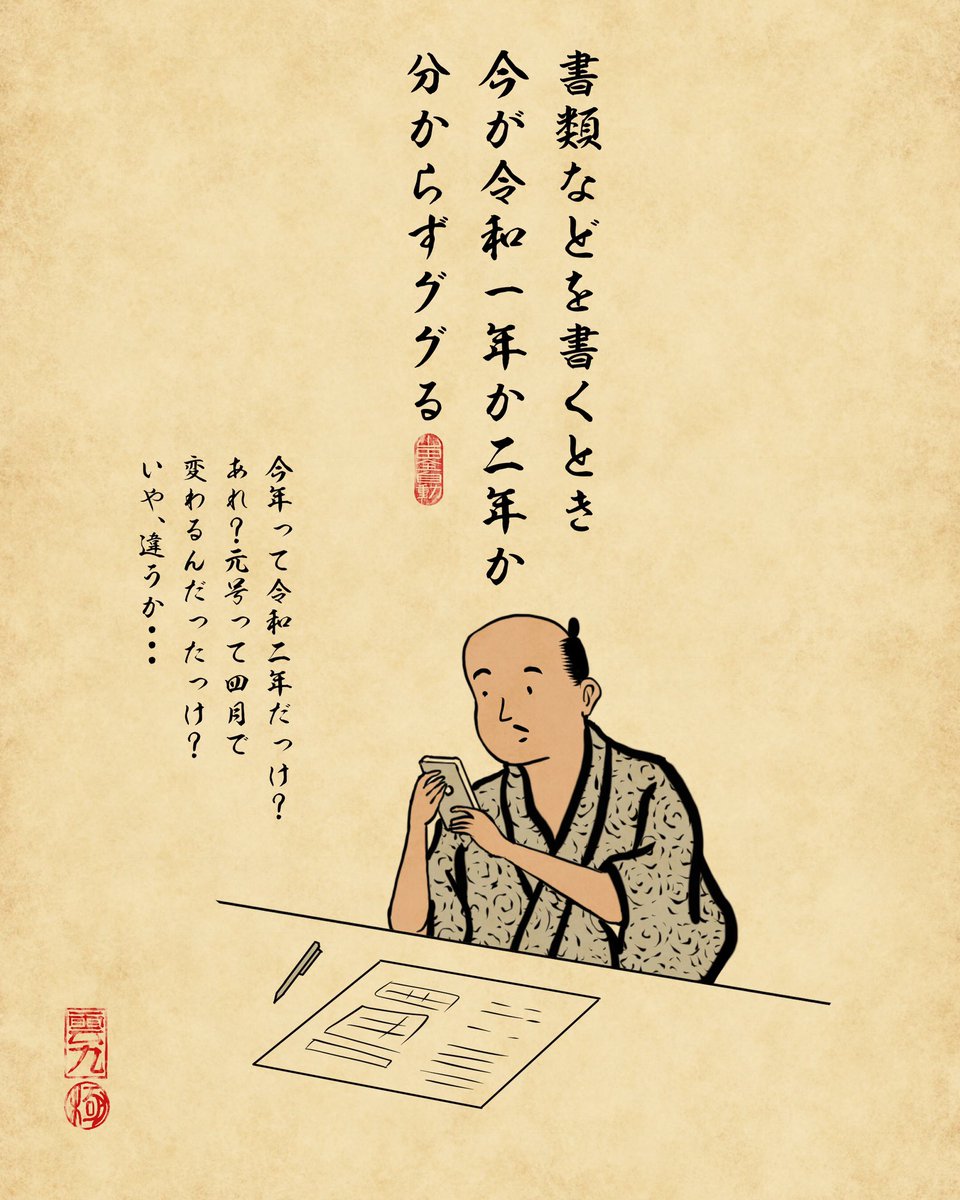 書類などを書くとき
今が令和一年か二年か
分からずググる
今年って令和二年だっけ？
あれ？元号って四月で
変わるんだったっけ？
いや、違うか・・・